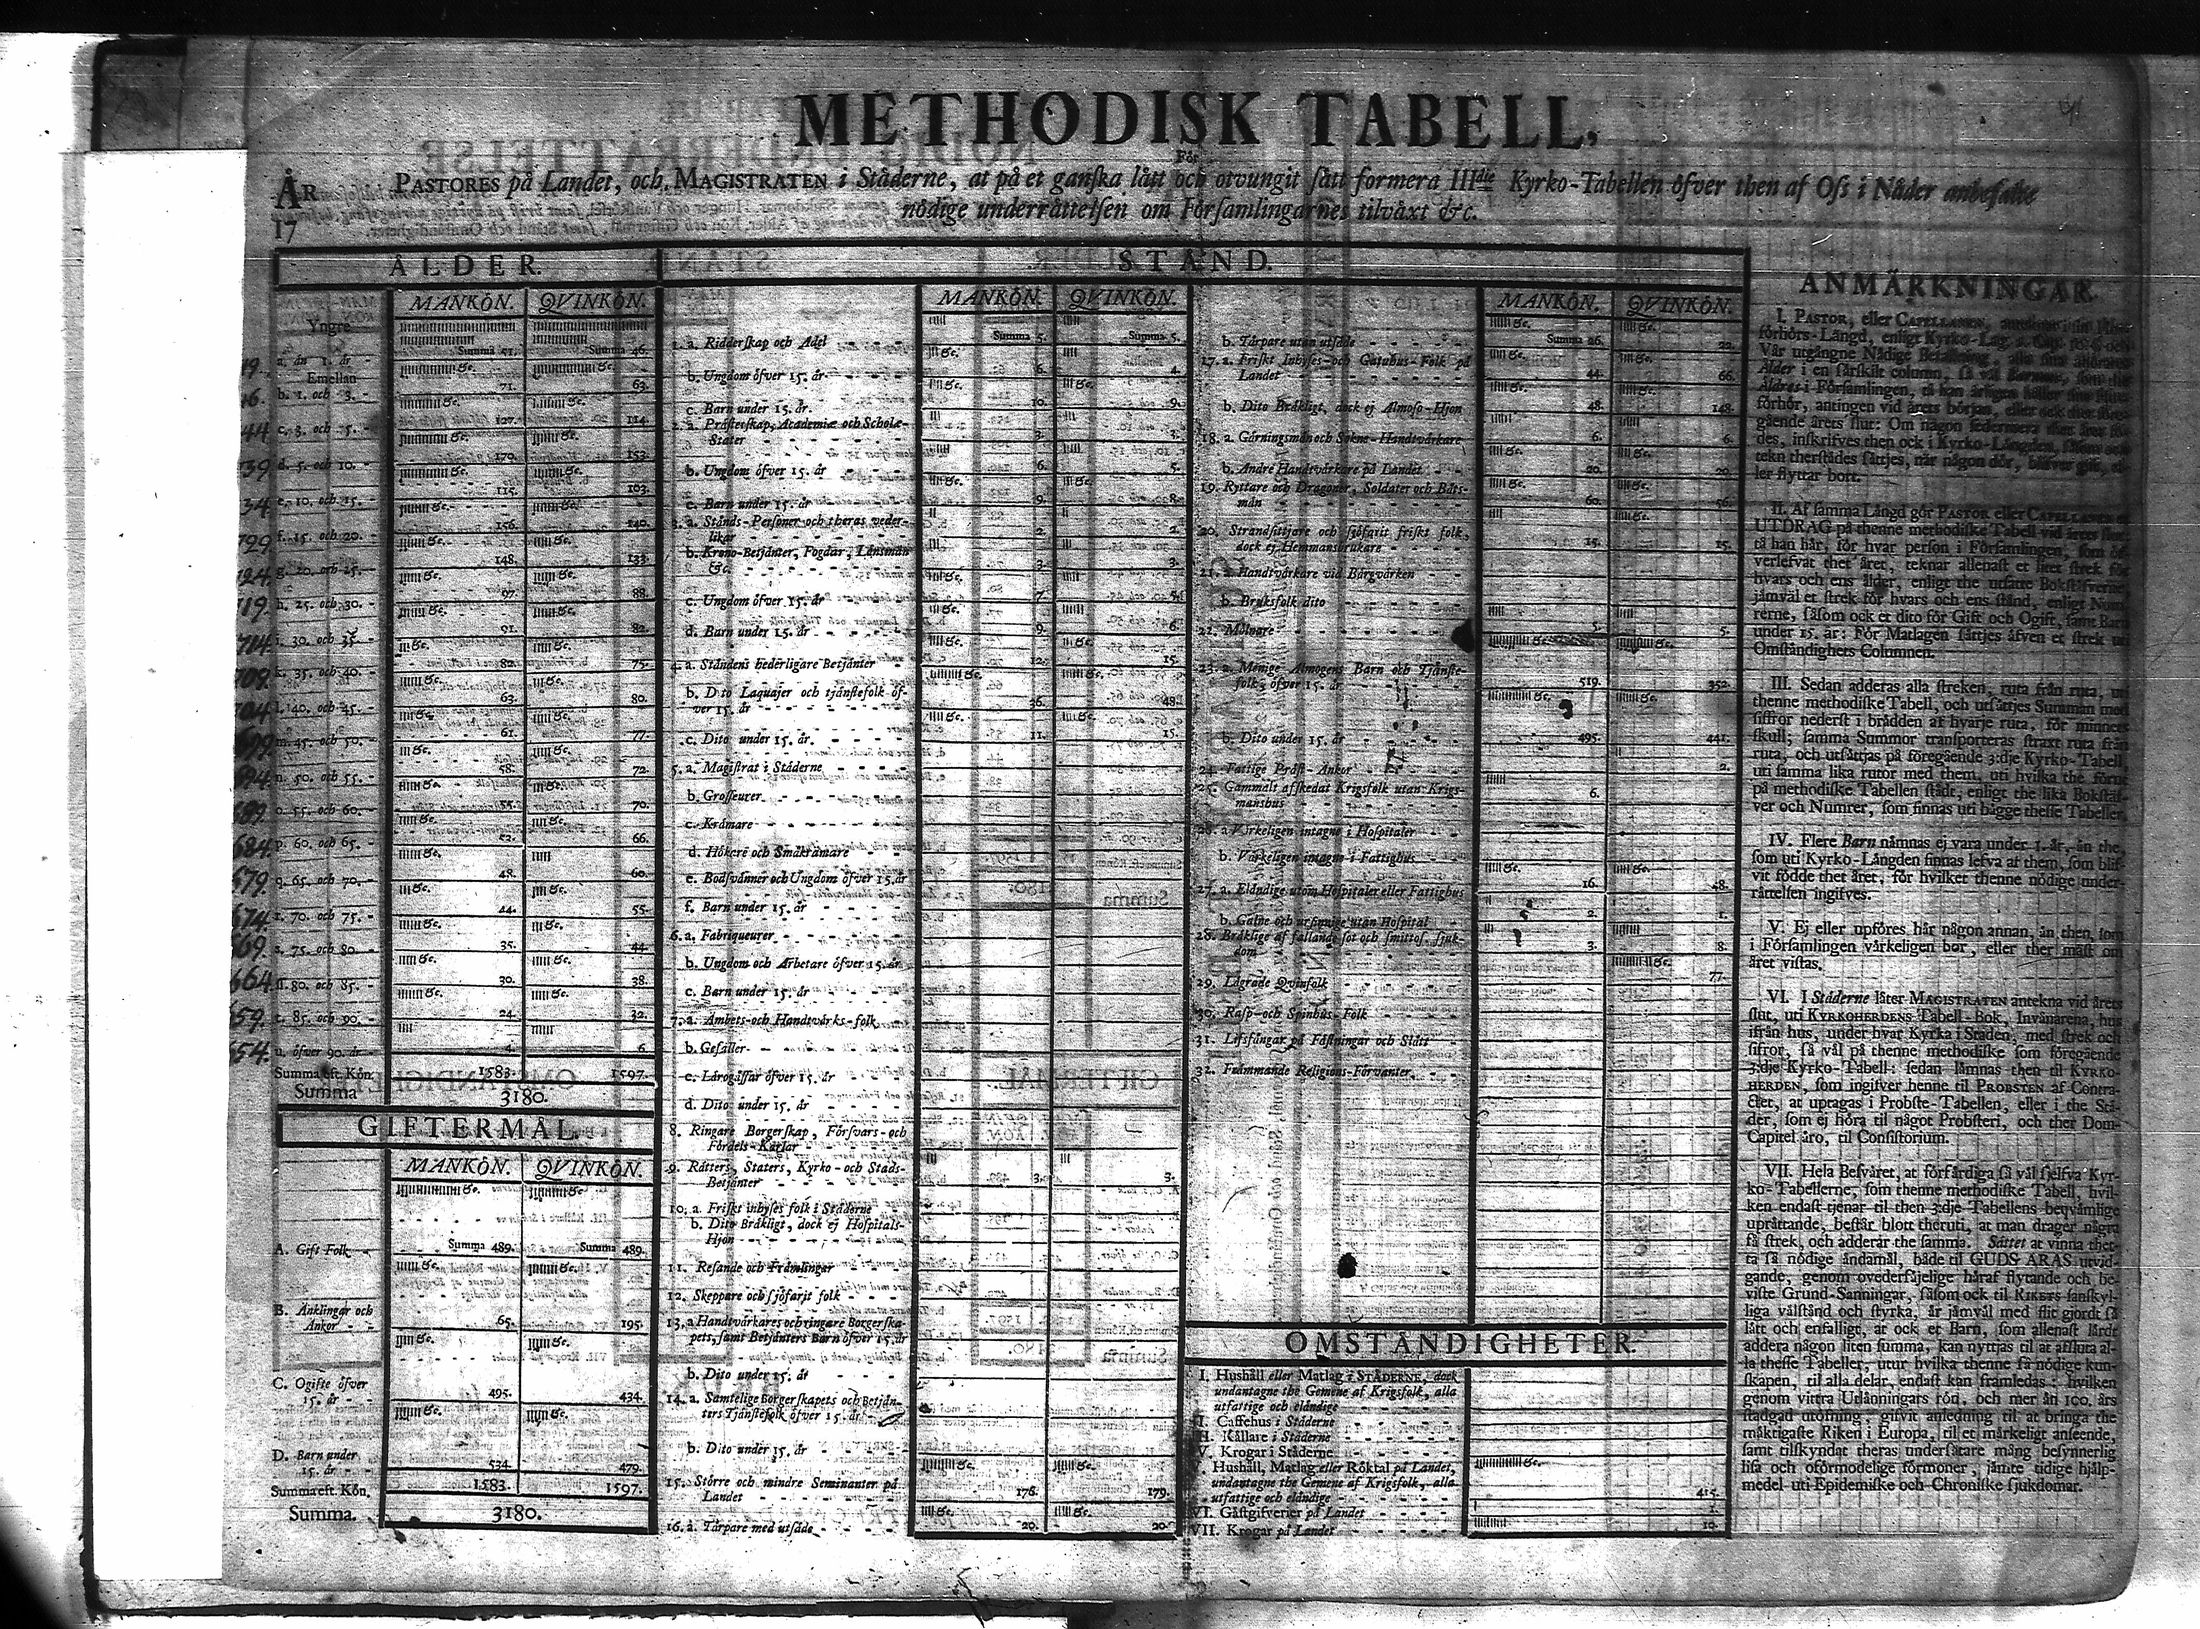 METHODISK TABELL,
För
PASTORES på Landet, och MAGISTRATEN i Ståderne, at på et ganska lått och otvungit sått formera IIIdie Kyrko-Tabellen öfver then af Oss i Nåder anbefalte
nödige underråttelsen om Församlingarnes tilvåxt &c.
ÅR
17
ÅLDER.
MANKÖN. QVINKÖN.
Yngre
a. ån 1. år Summa 51. Summa 46.
Emellan
b. 1. och 3. 71. 63.
c. 3. och 5. 127. 114.
d. 5. och 10. 179. 153.
e. 10. och 15. 115. 103.
f. 15. och 20. 156. 140.
g. 20. och 25. 148. 133.
h. 25. och 30. 97. 88.
i. 30. och 35. 91. 82.
k. 35. och 40. 82. 75.
l. 40. och 45. 63. 80.
m. 45. och 50. 61. 77.
n. 50. och 55. 58. 72.
o. 55. och 60. 55. 70.
p. 60. och 65. 52. 66.
q. 65. och 70. 48. 60.
r. 70. och 75. 44. 55.
s. 75. och 80. 35. 44.
ſſ. 80. och 85. 30. 38.
t. 85. och 90. 24. 32.
u. öfver 90. år 4. 6.
Summa eft. Kön. 1583. 1597.
Summa 3180.
GIFTERMÅL.
MANKÖN. QVINKÖN.
A. Gift Folk Summa 489. Summa 489.
B. Änklingar och
Änkor 65. 195.
C. Ogifte öfver
15. år 495. 434.
D. Barn under
15. år 534. 479.
Summa eft. Kön. 1583. 1597.
Summa. 3180.
STÅND.
MANKÖN. QVINKÖN.
1. a. Ridderskap och Adel Summa 5. Summa 5.
b. Ungdom öfver 15. år 6. 4.
c. Barn under 15. år. 10. 9.
2. a. Pråsterskap, Academiæ och Scholæ-
Stater 3. 3.
b. Ungdom öfver 15. år 6. 5.
c. Barn under 15. år 9. 8.
3. a. Stånds-Personer och theras veder-
likar 2. 2.
b. Krono-Betjånter, Fogdar, Lånsmån
&c. 3. 3.
c. Ungdom öfver 15. år 7. 5.
d. Barn under 15. år 9. 6.
4. a. Ståndens hederligare Betjånter 12. 15.
b. Dito Laquajer och tjånstefolk öf-
ver 15. år 36. 48.
c. Dito under 15. år. 11. 15.
5. a. Magistrat i Ståderne
b. Grosseurer
c. Kråmare
d. Hökare och Småkråmare
e. Bodsvånner och Ungdom öfver 15. år
f. Barn under 15. år
6. a. Fabriqueurer
b. Ungdom och Arbetare öfver 15. år
c. Barn under 15. år
7. a. Åmbets- och Handtvårks-folk
b. Gesåller
c. Lårogåssar öfver 15. år
d. Dito under 15. år.
8. Ringare Borgerskap, Försvars- och
Fördels-Karlar
9. Råtters, Staters, Kyrko- och Stads-
Betjånter 3. 3.
10. a. Friskt inhyses folk i Ståderne
b. Dito Bråkligt, dock ej Hospitals-
Hjon
11. Resande och Fråmlingar
12. Skeppare och sjöfarit folk
13. a Handtvårkares och ringare Borgerska-
pets, samt Betjånters Barn öfver 15. år
b. Dito under 15. år
14. a. Samtelige Borgerskapets och Betjån-
ters Tjånstefolk öfver 15. år
b. Dito under 15. år
15. Större och mindre Seminanter på
Landet 178. 179.
16. a. Torpare med utsåde 20. 20.
MANKÖN. QVINKÖN.
b. Torpare utan utsåde Summa 26. 22.
17. a. Friskt Inhyses- och Gatuhus-Folk på
Landet 44. 66.
b. Dito Bråkligt, dock ej Almoso-Hjon 48. 148.
18. a. Gårningsmån och Sokne-Handtvårkare 6. 6.
b. Andre Handtvårkare på Landet 20. 20.
19. Ryttare och Dragoner, Soldater och Båts-
mån 60. 56.
20. Strandsittjare och sjöfarit friskt folk,
dock ej Hemmansbrukare 15. 15.
21. a. Handtvårkare vid Bårgvårken
b. Bruksfolk dito
22. Mölnare 5. 5.
23. a. Menige Almogens Barn och Tjånste-
folk öfver 15. år 519. 352.
b. Dito under 15. år 495. 441.
24. Fattige Pråst-Ånkor 2.
25. Gammalt afskedat Krigsfolk utan Krigs-
manshus 6.
26. a Vårkeligen intagne i Hospitaler
b. Vårkeligen intagne i Fattighus
27. a. Elåndige utom Hospitaler eller Fattighus 16. 48.
b. Galne och ursinnige utan Hospital 2. 1.
28. Bråklige af fallande sot och smittos. sjuk-
dom 3. 8.
29. Lågrade Qvinfolk 77.
30. Rasp- och Spinhus-Folk
31. Lifsfångar på Fåstningar och Slått
32. Fråmmande Religions-Förvanter
OMSTÅNDIGHETER.
I. Hushåll eller Matlag i STÅDERNE, dock
undantagne the Gemene af Krigsfolk, alla
utfattige och elåndige
Caffehus i Ståderne
Kållare i Ståderne
Krogar i Ståderne
Hushåll, Matlag eller Röktal på Landet,
undantagne the Gemene af Krigsfolk, alla
utfattige och elåndige 415.
VI. Gåstgifverier på Landet 1.
VII. Krogar på Landet 10.
ANMÄRKNINGAR.
I. PASTOR, eller CAPELLANEN,
förhörs-Långd, enligt Kyrko-Lag.
Vår utgångne Nådige Befallning
Ålder i en sårskilt column, så vål Barnens, som the
Åldres i Församlingen, tå han årligen håller sine Hus-
förhör, antingen vid årets början, eller ock thet före-
gående årets slut: Om någon sedermera thet året fö-
des, inskrifves then ock i Kyrko-Långden,
tekn therstådes såttjes, når någon dör, blifver gift el-
ler flyttar bort.
II. Af samma Långd gör PASTOR eller CAPELLANEN
UTDRAG på thenne methodiske Tabell vid årets slut:
tå han hår, för hvar person i Församlingen, som öf-
verlefvat thet året, teknar allenast et litet strek för
hvars och ens ålder, enligt the utsatte Bokståfverne,
jåmvål et strek för hvars och ens stånd, enligt Num-
rerne, såsom ock et dito för Gift och Ogift, samt Barn
under 15. år: För Matlagen såttjes åfven et strek uti
Omståndighets Columnen.
III. Sedan adderas alla streken, ruta från ruta, uti
thenne methodiske Tabell, och utsåttjes Summan med
siffror nederst i brådden af hvarje ruta, för minnets
skull; samma Summor transporteras straxt ruta från
ruta, och utsåttjas på föregående 3:dje Kyrko-Tabell,
uti samma lika rutor med them, uti hvilka the förut
på methodiske Tabellen stådt, enligt the lika Bokståf-
ver och Numrer, som finnas uti bågge thesse Tabeller.
IV. Flere Barn nåmnas ej vara under 1. år, ån the,
som uti Kyrko-Långden finnas lefva af them, som blif-
vit födde thet året, för hvilket thenne nödige under-
råttelsen ingifves.
V. Ej eller upföres hår någon annan, ån then, som
i Församlingen vårkeligen bor, eller ther måst om
året vistas.
VI. I Ståderne låter MAGISTRATEN antekna vid årets
slut, uti KYRKOHERDENS Tabell-Bok, Invånarena, hus
ifrån hus, under hvar Kyrka i Staden, med strek och
sifror, så vål på thenne methodiske som föregående
3:dje Kyrko-Tabell: sedan låmnas then til KYRKO-
HERDEN, som ingifver henne til PROBSTEN af Contra-
ctet, at uptagas i Probste-Tabellen, eller i the Stå-
der, som ej höra til något Probsteri, och ther Dom-
Capitel åro, til Consistorium.
VII. Hela Besvåret, at förfårdiga så vål sjelfva Kyr-
ko-Tabellerne, som thenne methodiske Tabell, hvil-
ken endast tjenar til then 3:dje Tabellens beqvåmlige
upråttande, beståt blott theruti, at man drager några
få strek, och adderar the samma. Såttet at vinna thet-
ta så nödige åndamål, både til GUDS ÅRAS utvid-
gande, genom ovedersåjelige håraf flytande och be-
viste Grund-Sanningar, såsom ock til RIKETS fanskyl-
liga vålstånd och styrka, år jåmvål med flit gjordt så
lått och enfalligt, at ock et Barn, som allenast lårdt
addera någon liten summa, kan nyttjas til at afsluta al-
la thesse Tabeller, utur hvilka thenne så nödige kun-
skapen, til alla delar, endast kan framledas: hvilken
genom vittra Utlånningars röd, och mer ån 100. års
stadgad utöfning, gifvit anledning til at bringa the
måktigaste Riken i Europa, til et mårkeligt anseende,
samt tilskyndat theras undersåtare mång besynnerlig
lisa och oförmodelige förmoner, jåmte tidige hjålp-
medel uti Epidemiske och Chroniske sjukdomar.